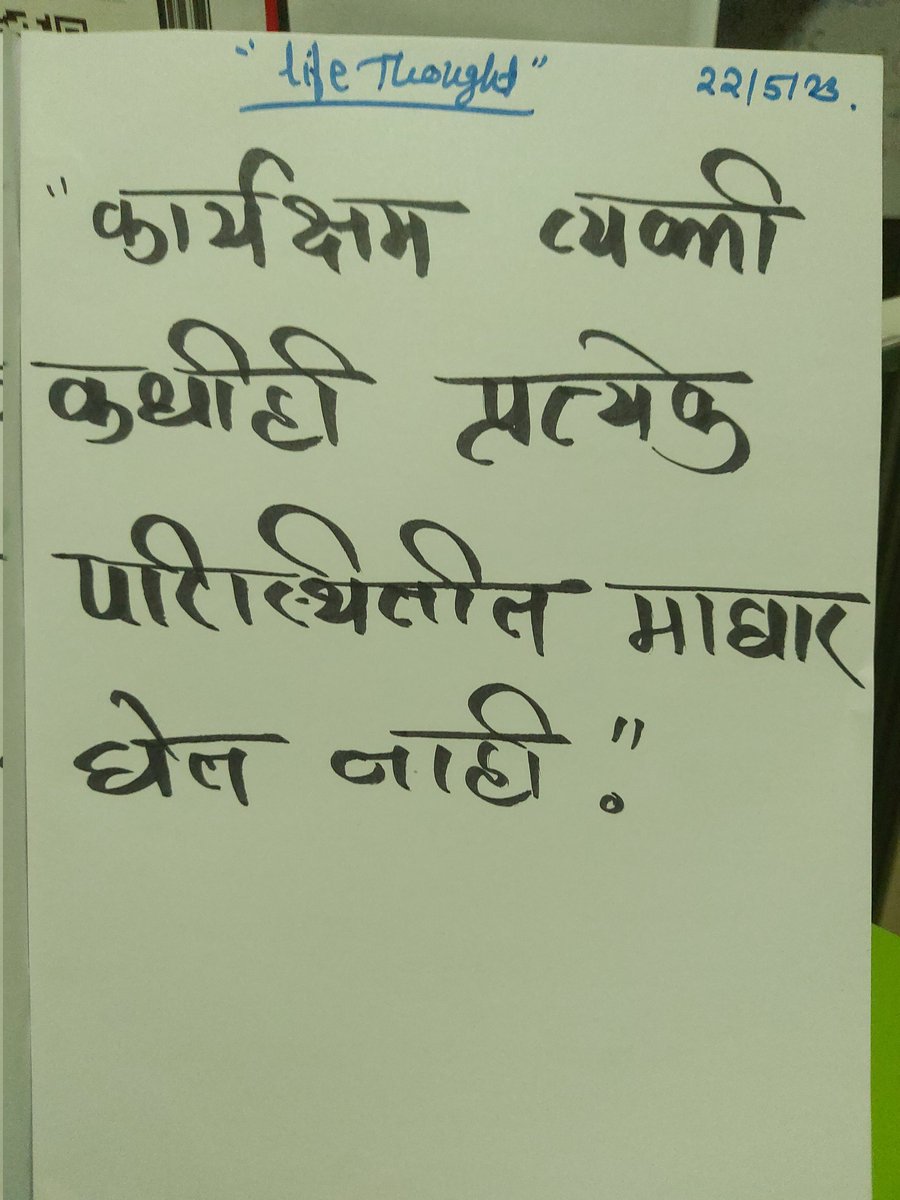 "Life Thought" 22/5/23.
"कार्यक्षम व्यक्ती
कधीही प्रत्येक
परिस्थितीत माघार
घेत नाही."